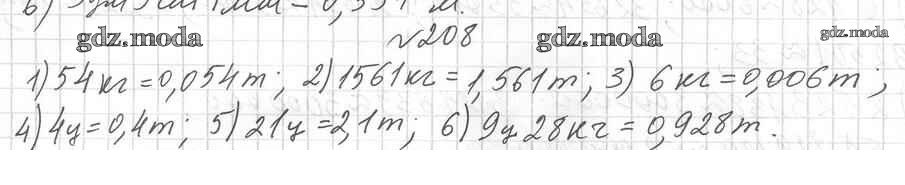 №208
gdz.moda gdz.moda gdz.moda
1) 54 кг = 0,054 т; 2) 1561 кг = 1,561 т; 3) 6 кг = 0,006 т;
4) 4 ц = 0,4 т; 5) 21 ц = 2,1 т; 6) 9 ц 28 кг = 0,928 т.